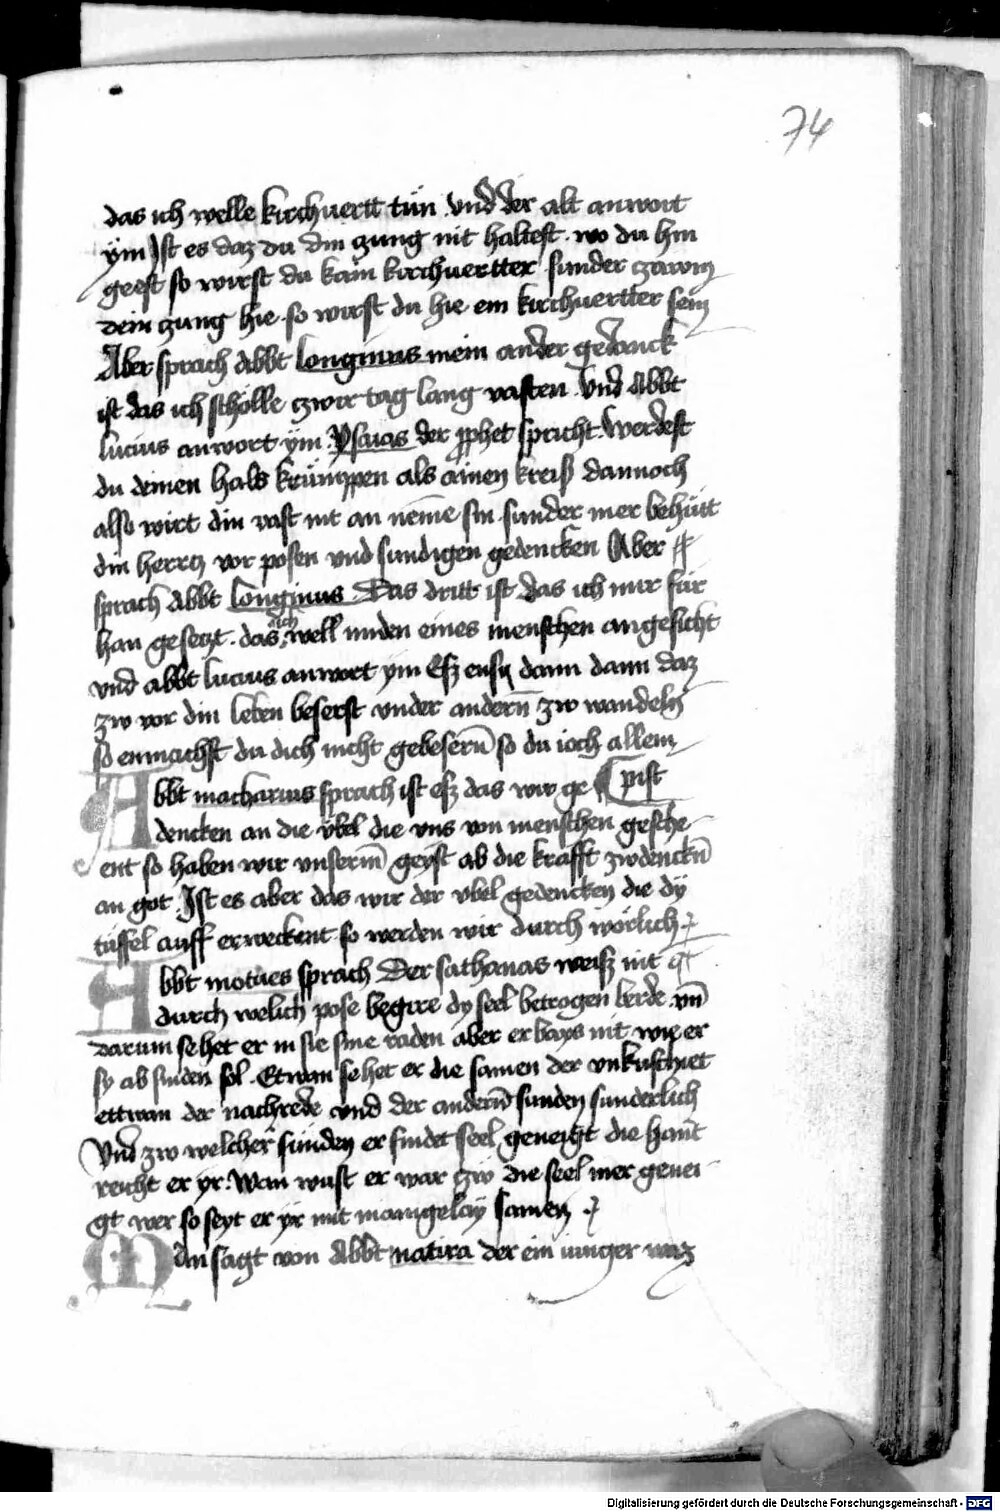 74
das ich welle kirchuertt tün vnd der alt anwort
ÿm Ist es daz du din zung nit haltest · wo du hin
geest so wirst du kain kirchuertter sunder
dein zung hie · so wirst du hie ein kirchuertter sein
Aber sprach Abbt longinus mein ander gedanck
ist das ich schölle zwir tag lang vasten · Vnd Abbt
lucius anwort ÿm · Ysaias der prophet spricht · Werdest
du deinen hals krümppen als ainen kreiß dannoch
also wirt din vast nit an neme sin · sunder mer behüit
din herrtz vor posen vnd sundigen gedencken Aber
sprach Abbt longinus Das dritt ist das ich mir für
han gesetzt · das ich well miden eines menschen angesicht
vnd abbt lucius anwort ÿm Esz ensy dann dann daz
zw vor din leben beserst vnder andern zw wandeln
so enmachst du dich nicht gebesern so du ioch allein
pist
Abbt macharius sprach ist esz das wir ge
dencken an die übel die vns von menschen gesche
ent so haben wir vnserm geyst ab die krafft zwdencken
an got · Ist es aber das wir der vbel gedencken die dÿ
tüffel auff erweckent so werden wir durch wörlich
Abbt motues sprach Der sathanas weisz nit
durch welich pose begire dy seel betrogen werde vn
darum sehet er in sie sine raden aber er ways nit wie er
sy ab sinden sol · Etwan sehet er die samen der vnkuschiet
ettwan der nachrede vnd der andern sunden sunderlich
Vnd zw welcher sünden er findet seel geneigt die hant
reicht er yr · Wan wust er war zw die seel mer genei
gt wer so seyt er yr nit maingelaÿ samen
Man sagt von Abbt natira der ein iunger waz
Digitalisierung gefördert durch die Deutsche Forschungsgemeinschaft - DFG